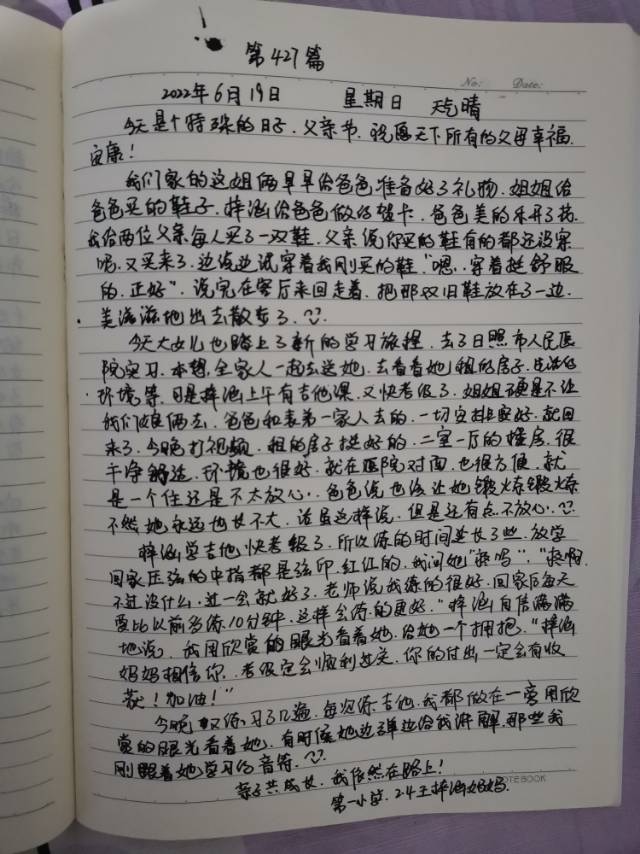 第427篇
No: Date:
2022年6月19日 星期日 天气晴
今天是个特殊的日子，父亲节，祝愿天下所有的父母幸福
安康！
我们家的这姐俩早早给爸爸准备好了礼物，姐姐给
爸爸买的鞋子，梓涵给爸爸做的贺卡，爸爸美的乐开了花，
我给两位父亲每人买了一双鞋，父亲说你买的鞋有的都还没穿
呢，又买来了，边说边试穿着我刚买的鞋“嗯，穿着挺舒服
的，正好”，说完在客厅来回走着，把那双旧鞋放在了一边，
美滋滋地出去散步了。
今天大女儿也踏上了新的学习旅程，去了日照市人民医
院实习，本想全家人一起去送她，去看看她租的房子，生活的
环境等，可是梓涵上午有吉他课，又快考级了，姐姐硬是不让
我们娘俩去，爸爸和表弟一家人去的，一切安排妥好，就回
来了，今晚打视频，租的房子挺好的，二室一厅的楼房，很
干净舒适，环境也很好，就在医院对面，也很方便，就
是一个住还是不太放心，爸爸说也该让她锻炼锻炼
不然她永远也长不大，话虽这样说，但是还有点不放心。
梓涵学吉他快考级了，所以练的时间并长了些，放学
回家压弦的中指都是弦印，红红的，我问她“疼吗”，“疼啊，
不过没什么，过一会就好了，老师说我练的很好，回家后每天
要比以前多练10分钟，这样会练的更好，”梓涵自信满满
地说，我用欣赏的眼光看着她，给她一个拥抱，“梓涵
妈妈相信你，考级定会顺利过关，你的付出一定会有收
获！加油！”
今晚又练习了几遍，每次练吉他，我都做在一旁用欣
赏的眼光看着她，有时候她边弹边给我讲解，那些我
刚跟着她学习的音符。
亲子共成长，我依然在路上！
NOTEBOOK
第一小学，2.4王梓涵妈妈